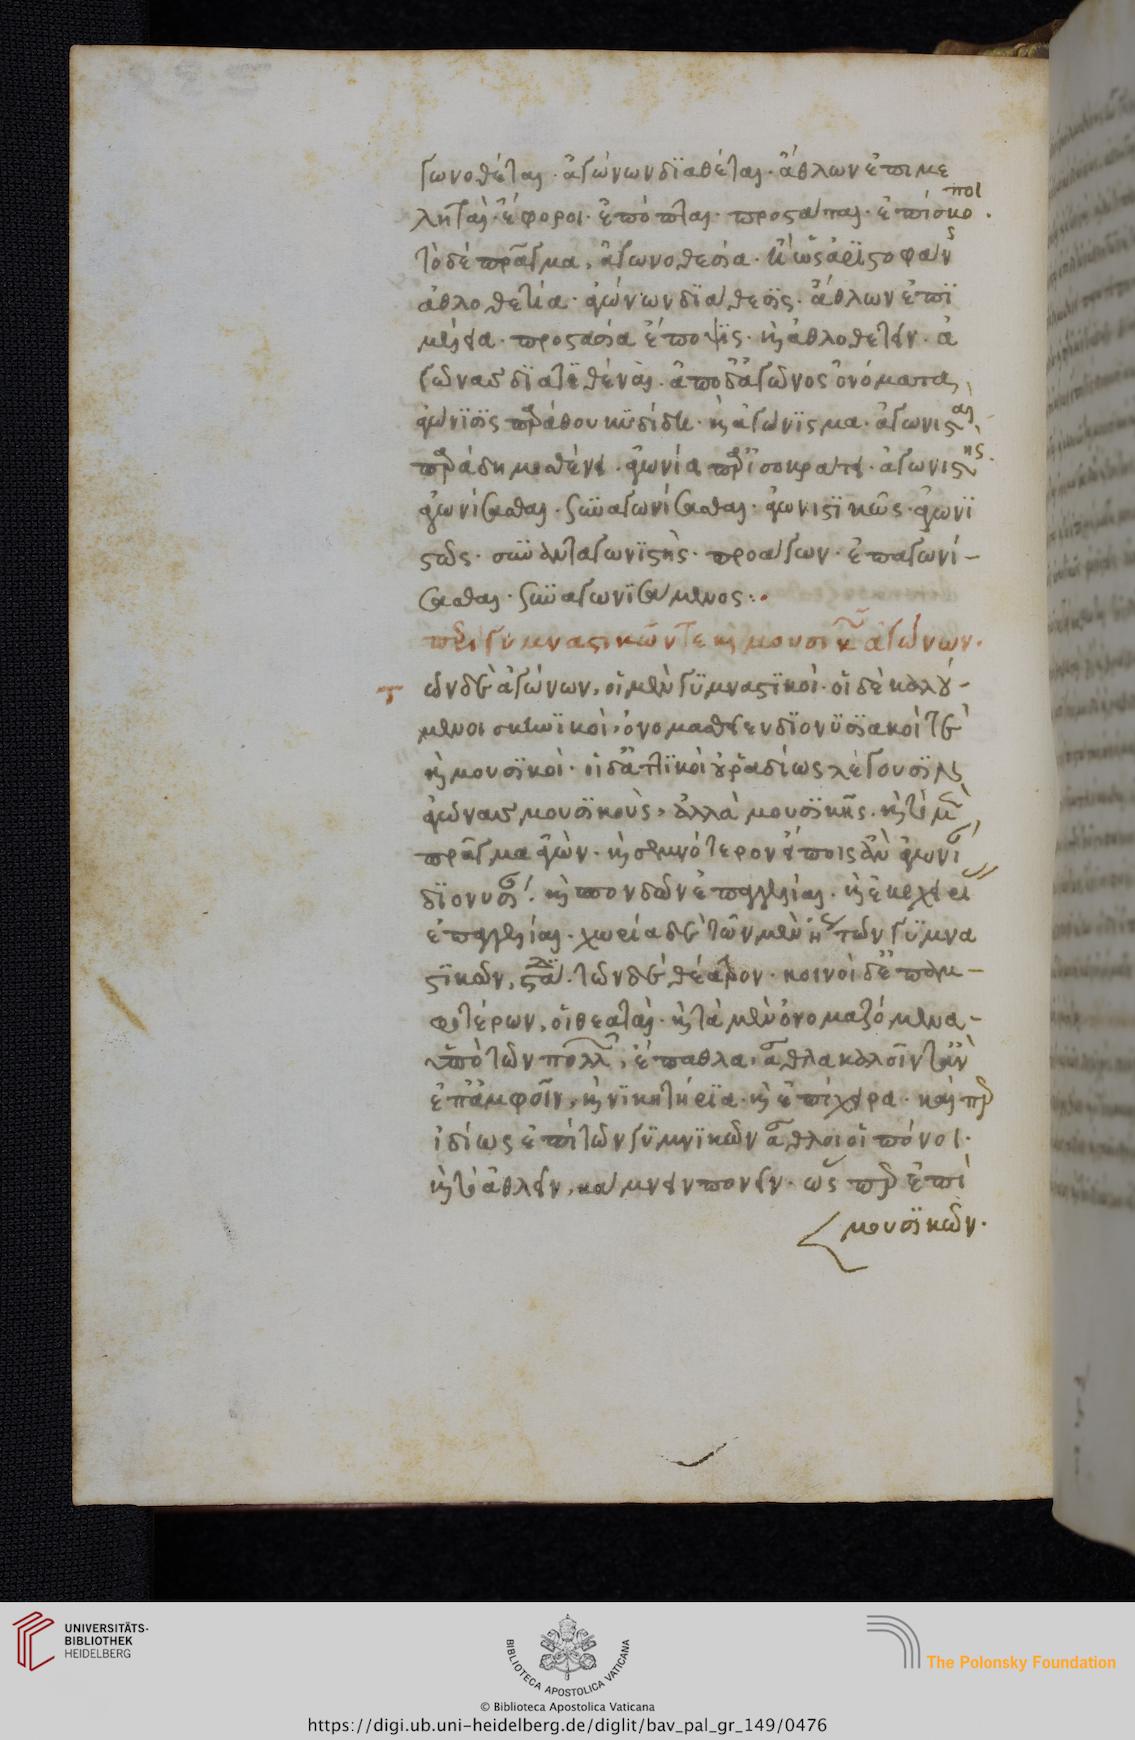 γωνοθέται· ἀγώνων διαθέται· ἄθλων ἐπιμε
ληταί· ἔφοροι· ἐπόπται· προστάται· ἐπίσκοποι·
τὸ δὲ πρᾶγμα, ἀγωνοθεσία· καὶ ὡς ἀριστοφάνης
ἀθλοθετία· ἀγώνων διάθεσις· ἄθλων ἐπι
μέλεια· προστασία ἔποψις· καὶ ἀθλοθετεῖν· ἀ
γῶνας διατεθέναι· ἀπὸ δὲ ἀγῶνος ὀνόματα,
ἀγώνισις παρὰ θουκυδίδη· καὶ ἀγώνισμα· ἀγωνισταὶ
ἀγωνία παρ' ἰσοκράτει· ἀγωνιστὴς·
ἀγωνίσασθαι· συναγωνίσασθαι· ἀγωνιστικῶς· ἀγωνι
στῶς· σὺν ἀνταγωνιστὴς· προαγων· ἐπαγωνί-
σασθαι· συναγωνισάμενος:·
περὶ γυμναστικῶν τε καὶ μουσικῶν ἀγώνων·
τῶν δὲ ἀγώνων, οἱ μὲν γυμναστικοὶ· οἱ δὲ καλού-
μενοι σκηνικοὶ, ὀνομασθεῖεν διονυσιακοί τε
καὶ μουσικοὶ· οἱ δὲ ἀττικοὶ οὐ ῥαδίως λέγουσιν
ἀγῶνας μουσικοὺς, ἀλλὰ μουσικῆς· καὶ τὸ μὲν
πρᾶγμα ἀγὼν· καὶ σεμνότερον εἴποις ἂν ἀγωνία
διονυσία· καὶ σπονδῶν ἐπαγγελίαι· καὶ ἐκεχειρίας
ἐπαγγελίαι· χωρία δὲ τῶν μὲν τῶν γυμνα
στικῶν, στάδιον· τῶν δὲ θέατρον· κοινοὶ δὲ ἐπ' ἀμ-
φοτέρων, οἱ θεαταὶ· καὶ τὰ μὲν ὀνομαζόμενα-
ὑπὸ τῶν πολλῶν, ἔπαθλα, ἆθλα καλοῖντ' ἂν
ἐπ' ἀμφοῖν, καὶ νικητήρια· καὶ ἐπίχειρα· καίπερ
ἰδίως ἐπὶ τῶν γυμνικῶν ἆθλοι οἱ πόνοι·
καὶ τὸ ἀθλεῖν, κάμνειν πονεῖν· ὡς περ ἐπὶ
μουσικῶν·
UNIVERSITÄTS-
BIBLIOTHEK
HEIDELBERG
BIBLIOTECA APOSTOLICA VATICANA
The Polonsky Foundation
© Biblioteca Apostolica Vaticana
https://digi.ub.uni-heidelberg.de/diglit/bav_pal_gr_149/0476